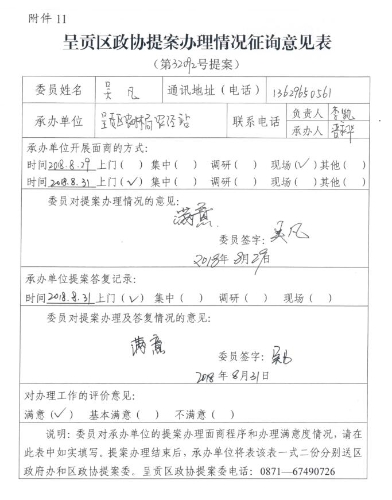 附件 11
呈贡区政协提案办理情况征询意见表
（第32092号提案）
委员姓名 吴凡 通讯地址（电话） 13629650561
承办单位 呈贡区农林局 联系电话 负责人
承办人
承办单位开展面商的方式：
时间2018.8.29 上门（ ） 集中（ ） 调研（ ） 现场（√）其他（ ）
时间2018.8.31 上门（√） 集中（ ） 调研（ ） 现场（ ）其他（ ）
委员对提案办理情况的意见：
满意
委员签字：吴凡
2018年8月29日
承办单位提案答复记录：
时间2018.8.31 上门（√） 集中（ ） 调研（ ） 现场（ ）
委员对提案办理及答复情况的意见：
满意
委员签字：吴凡
2018年8月31日
对办理工作的评价意见：
满意（√） 基本满意（ ） 不满意（ ）
说明：委员对承办单位的提案办理面商程序和办理满意度情况，请在
此表中如实填写。提案办理结束后，承办单位将表该表一式二份分别送区
政府办和区政协提案委。呈贡区政协提案委电话：0871—67490726